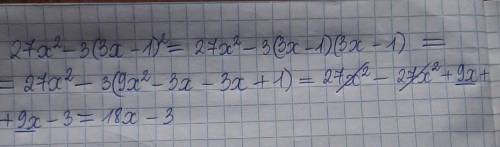 27x² - 3(3x - 1)² = 27x² - 3(3x - 1)(3x - 1) =
= 27x² - 3(9x² - 3x - 3x + 1) = 27x² - 27x² + 9x +
+ 9x - 3 = 18x - 3